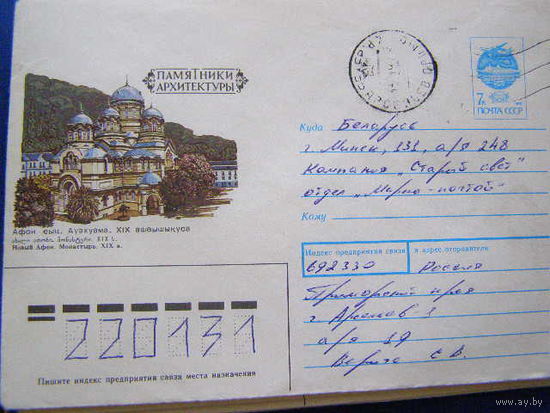 ПАМЯТНИКИ
АРХИТЕКТУРЫ
7к
ПОЧТА СССР
Куда Беларусь
г. Минск, 131, а/я 248
Компания "Старый свет"
отдел "Мирно-почтой"
Кому
Афон ҿыц. Ауахуама. XIX ашәышықуса
Новый Афон. Монастырь. XIX в.
Индекс предприятия связи и адрес отправителя
692330 Россия
Приморский край
г Арсеньев 1
а/я 19
С. В.
220131
Пишите индекс предприятия связи места назначения
www.ay.by